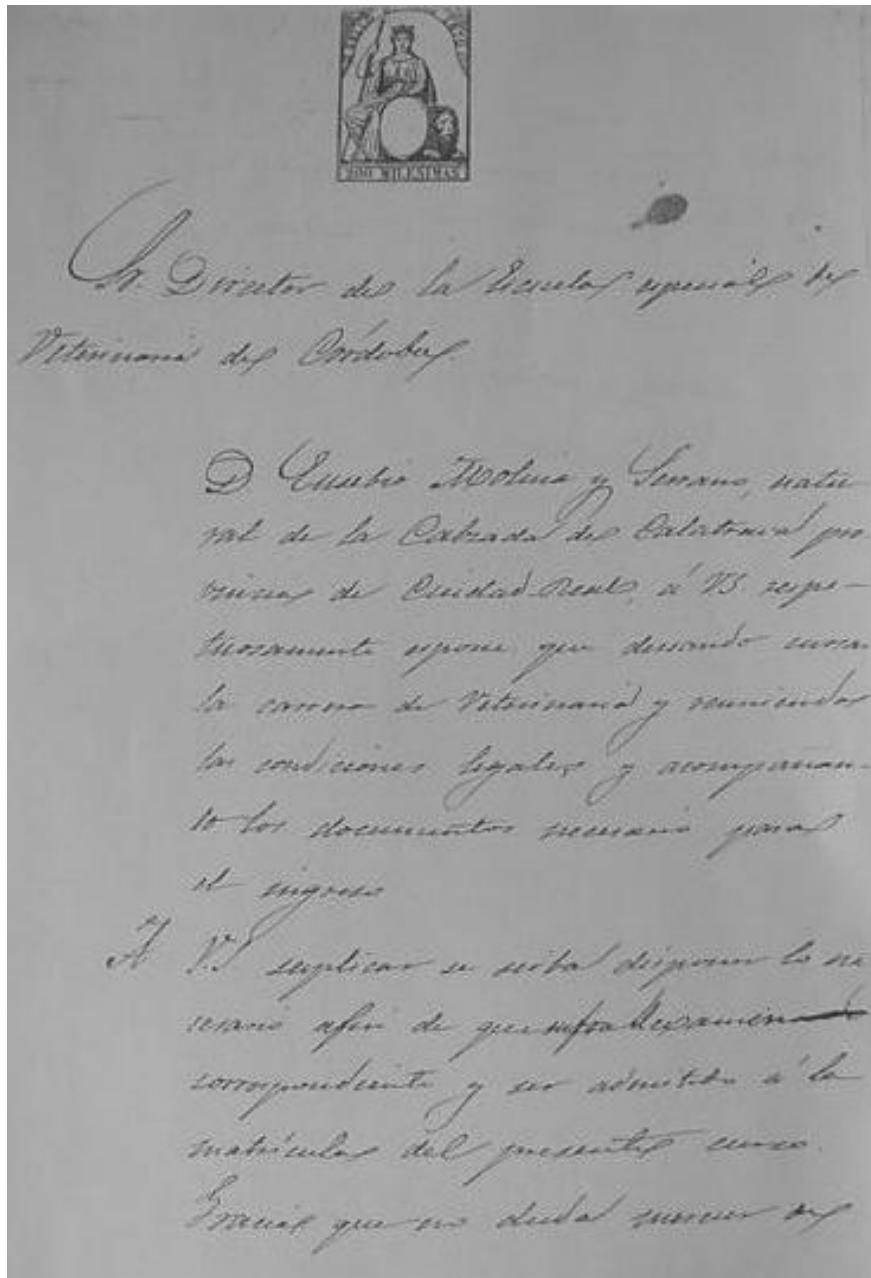 200 MILESIMAS
Sr. Director de la Escuela especial de
Veterinaria de Córdoba
D Eusebio Molina y Serrano, natu-
ral de la Calzada de Calatrava pro-
vincia de Ciudad-Real, á VS. respe-
tuosamente espone que deseando cursar
la carrera de Veterinaria y reuniendo
las condiciones legales y acompañan-
do los documentos necesario para
el ingreso
A V.S suplica se sirba disponer lo ne
cesario afin de que sufra el examen
correspondiente y ser admitido á la
matrícula del presente curso.
Gracia que no duda merecer de